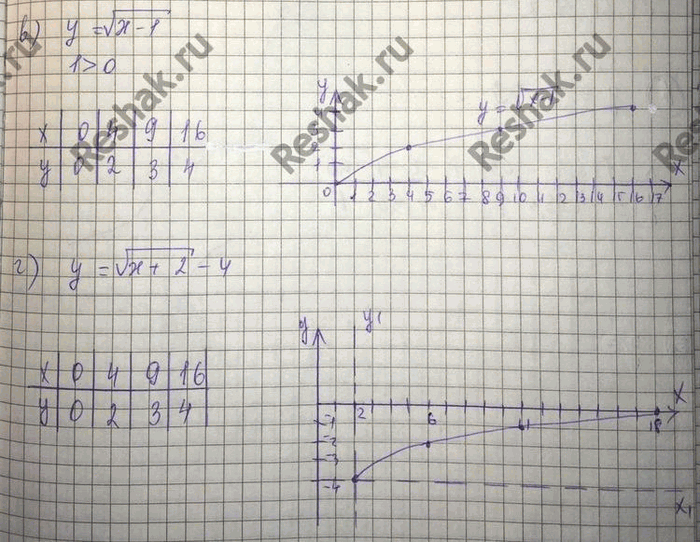 в) y = √x - 1
1 > 0
x | 0 | 4 | 9 | 16
y | 0 | 2 | 3 | 4
y
y = √x-1
1
0 1 2 3 4 5 6 7 8 9 10 11 12 13 14 15 16 17
x
г) y = √x + 2 - 4
x | 0 | 4 | 9 | 16
y | 0 | 2 | 3 | 4
y y'
x
2 6 11 18
-1
-2
-3
-4
x1
Reshak.ru
Reshak.ru
Reshak.ru